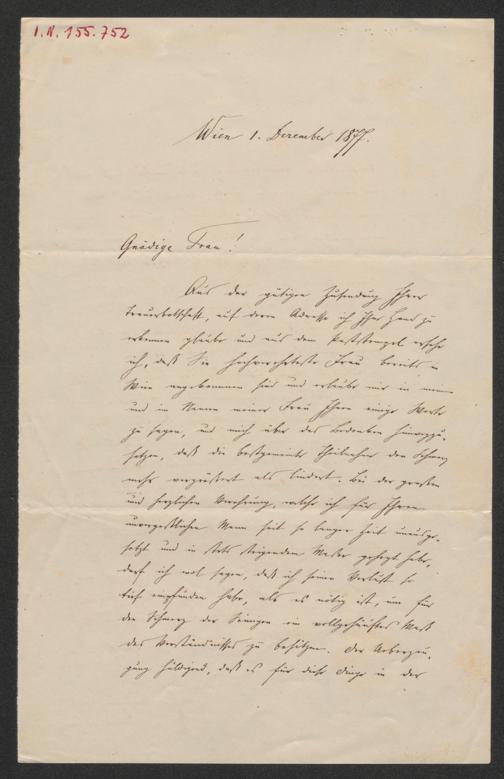 I.N. 155.752
Wien 1. December 1877.
Gnädige Frau!
Aus der gütigen Zusendung Ihrer
Trauerbotschaft, auf deren Adresse ich Ihre Hand zu
erkennen glaube und aus dem Poststempel ersehe
ich, daß Sie hochverehrteste Frau bereits in
Wien angekommen sind und erlaube mir in meinem
und im Namen meiner Frau Ihnen einige Worte
zu sagen, und mich über das Bedenken hinwegzu-
setzen, daß die bestgemeinte Theilnahme den Schmerz
mehr vergrößert als lindert. Bei der großen
und herzlichen Verehrung, welche ich für Ihren
unvergeßlichen Mann seit so langer Zeit unausge-
setzt und in stets steigendem Maße gehegt habe,
darf ich wol sagen, daß ich seinen Verlust so
tief empfunden habe, als es nötig ist, um für
den Schmerz der Seinigen ein vollgehäuftes Maß
des Verständnisses zu besitzen. Der Ueberzeu-
gung huldigend, daß es für diese Dinge in der